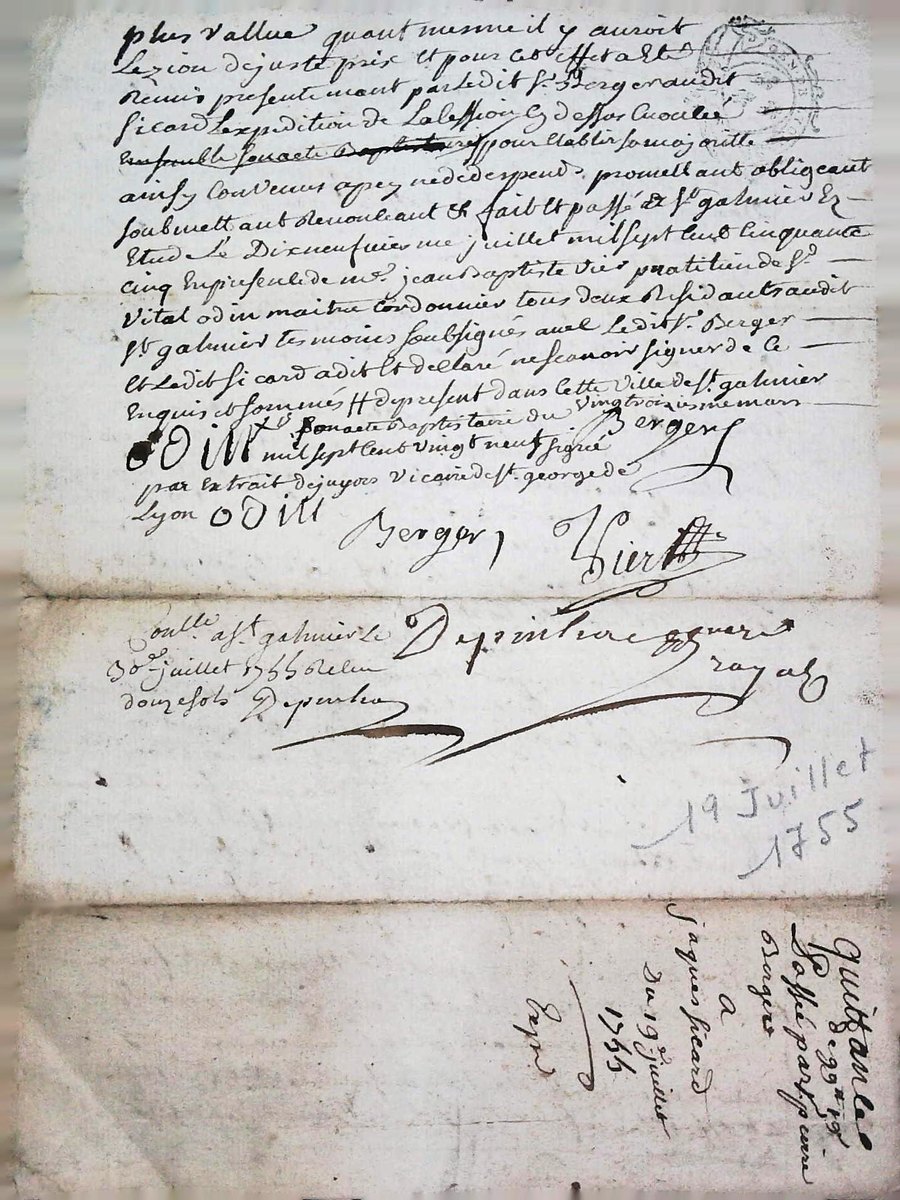 plus vallue quant mesme il y auroit
Lezion de juste prix et pour cet effet a Eté
Remis presentement par Ledit Sr. Berger audit
Sicard Lexpedition de La Cession Cy dessos Enoncée
Ensemble son acte Baptistaire pour Etablir sa majoritté
ainsy Convenus a peyne de despend. promettant obligeant
soubmettant Renonceant & fait Et passé a St galmier En
Etude Le Dixneufvieme juillet mil sept Cent Cinquante
cinq En presence de me. jean Baptiste Vier pratitien de Sr.
Vital odin maitre Cordonnier tous deux Residants audit
St galmier tesmoins soubsignés avec Ledit Sr. Berger
Et Ledit Sicard a dit Et declaré ne scavoir signer de Ce
Enquis et sommés # de present dans Cette Ville de St. galmier
son acte Baptistaire du Vingtroisiesme mars
odin Berger
mil sept Cent Vingt neuf signé
par Extrait dejuyors Vicaire de St. george de
Lyon odin
Berger Vier
Conllé a St galmier Le
30e juillet 1755 Relen
douze sols Depinhac
Depinhac
royal
19 Juillet
1755
quittance
de 99# 19s
Passée par pierre
Berger
a
jaques sicard
Du 19e juillet
1755
Expn.